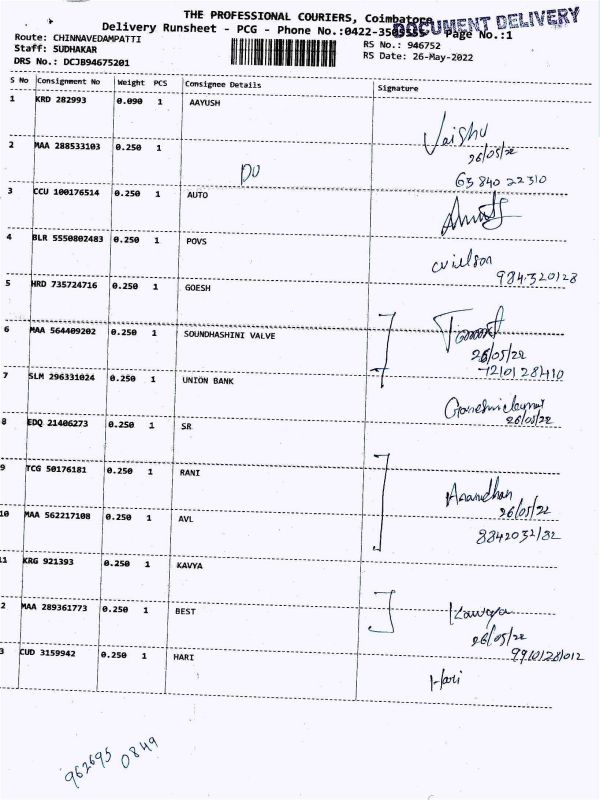 THE PROFESSIONAL COURIERS, Coimbatore
DOCUMENT DELIVERY
Delivery Runsheet - PCG - Phone No.:0422-350 Page No.:1
Route: CHINNAVEDAMPATTI
RS No.: 946752
Staff: SUDHAKAR
RS Date: 26-May-2022
DRS No.: DCJB94675201
S No Consignment No Weight PCS Consignee Details Signature
1 KRD 282993 0.090 1 AAYUSH
26/05/22
2 MAA 288533103 0.250 1
DU
63840 22310
3 CCU 100176514 0.250 1 AUTO
4 BLR 5550802483 0.250 1 POVS
984320128
5 HRD 735724716 0.250 1 GOESH
6 MAA 564409202 0.250 1 SOUNDHASHINI VALVE
26/05/22
7 SLM 296331024 0.250 1 UNION BANK
26/05/22
8 EDQ 21406273 0.250 1 SR
9 TCG 50176181 0.250 1 RANI
Anandhan
26/05/22
10 MAA 562217108 0.250 1 AVL
8842032132
11 KRG 921393 0.250 1 KAVYA
2 MAA 289361773 0.250 1 BEST
Kavya
26/05/22
3 CUD 3159942 0.250 1 HARI
9910128012
Hari
962695 0849